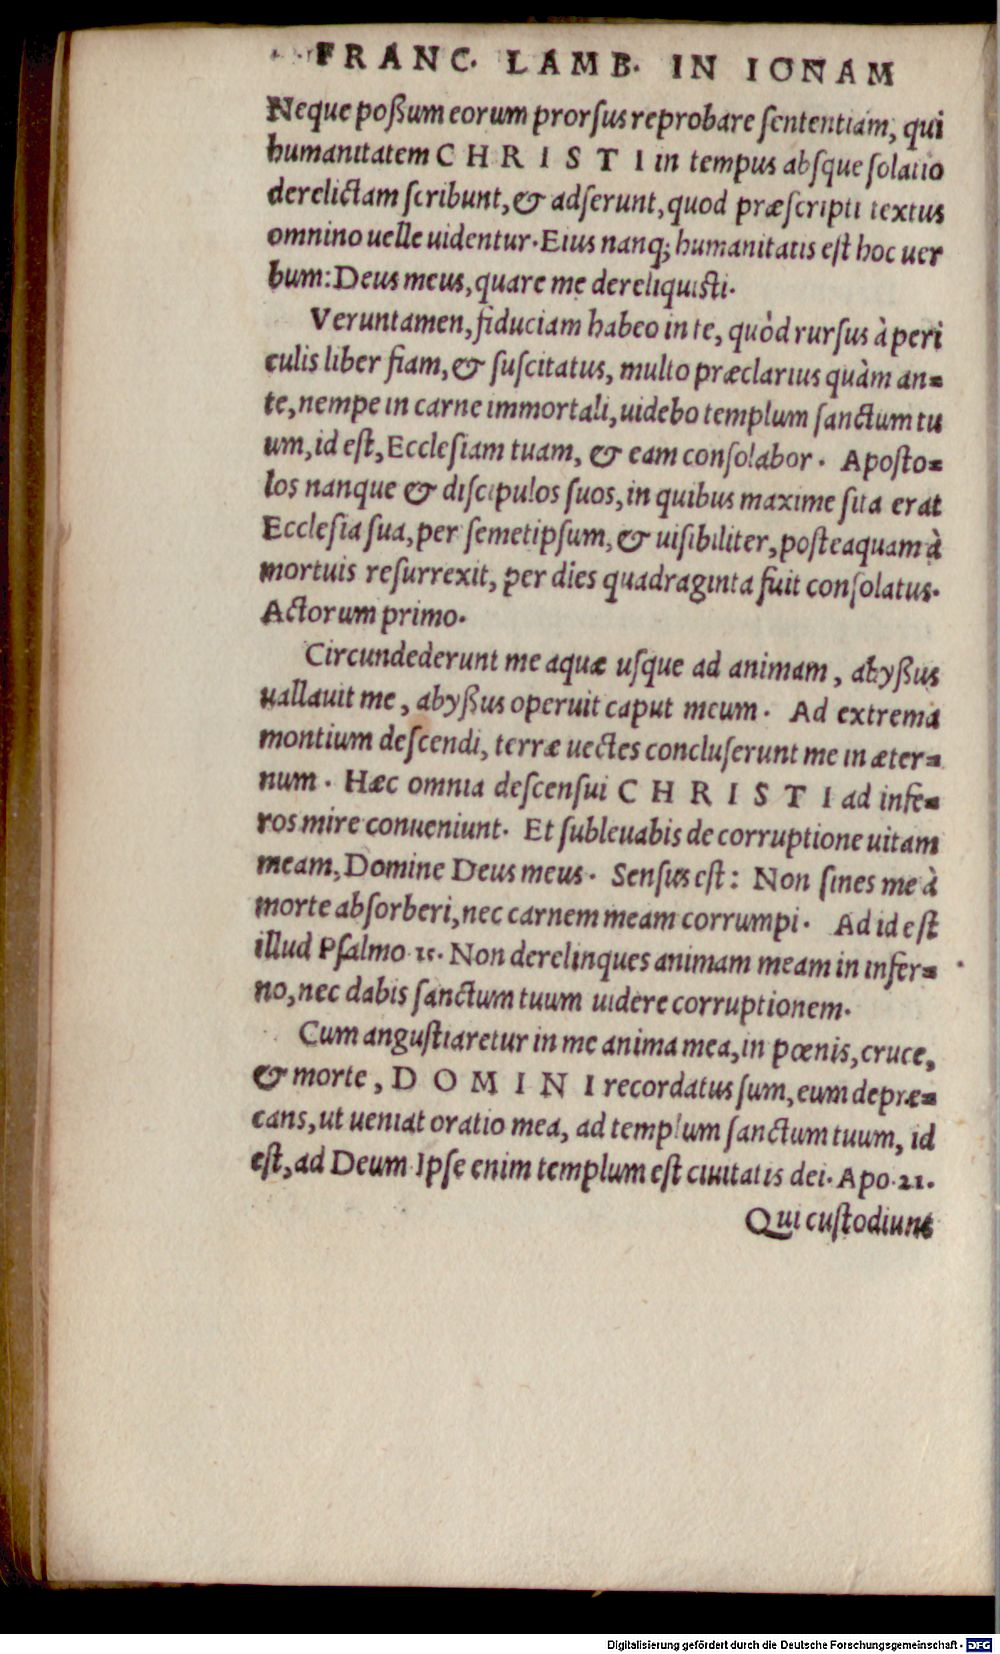 FRANC. LAMB. IN IONAM
Neque poßum eorum prorſus reprobare ſententiam, qui
humanitatem CHRISTI in tempus abſque ſolatio
derelictam ſcribunt, & adſerunt, quod præſcripti textus
omnino uelle uidentur. Eius nanq; humanitatis eſt hoc uer
bum: Deus meus, quare me dereliquiſti.
Veruntamen, fiduciam habeo in te, quòd rurſus à peri
culis liber fiam, & ſuſcitatus, multo præclarius quàm an=
te, nempe in carne immortali, uidebo templum ſanctum tu
um, id eſt, Eccleſiam tuam, & eam conſolabor. Apoſto=
los nanque & diſcipulos ſuos, in quibus maxime ſita erat
Eccleſia ſua, per ſemetipſum, & uiſibiliter, poſteaquam à
mortuis reſurrexit, per dies quadraginta fuit conſolatus.
Actorum primo.
Circundederunt me aquæ uſque ad animam, abyßus
uallauit me, abyßus operuit caput meum. Ad extrema
montium deſcendi, terræ uectes concluſerunt me in æter=
num. Hæc omnia deſcenſui CHRISTI ad infe=
ros mire conueniunt. Et ſubleuabis de corruptione uitam
meam, Domine Deus meus. Senſus eſt: Non ſines me à
morte abſorberi, nec carnem meam corrumpi. Ad id eſt
illud Pſalmo 15. Non derelinques animam meam in infer=
no, nec dabis ſanctum tuum uidere corruptionem.
Cum anguſtiaretur in me anima mea, in pœnis, cruce,
& morte, DOMINI recordatus ſum, eum depræ=
cans, ut ueniat oratio mea, ad templum ſanctum tuum, id
eſt, ad Deum. Ipſe enim templum eſt ciuitatis dei. Apo. 21.
Qui cuſtodiunt
Digitalisierung gefördert durch die Deutsche Forschungsgemeinschaft - DFG